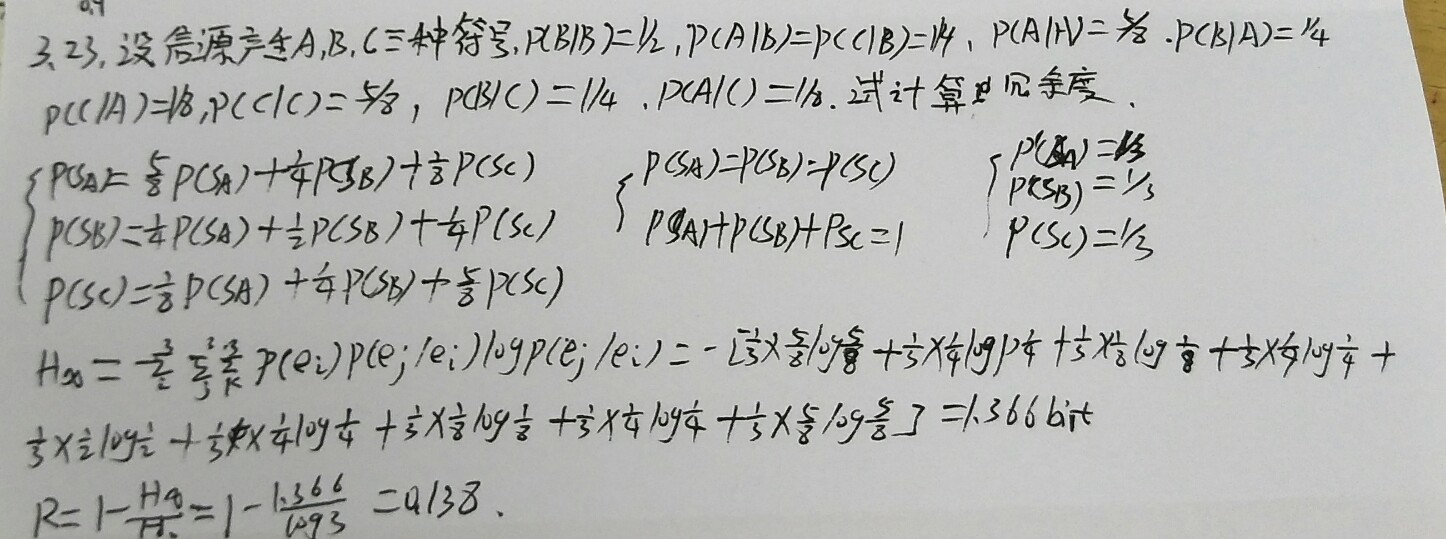 0.4
3.23, 设信源产生A,B,C三种符号,P(B|B)=1/2,P(A|B)=P(C|B)=1/4、P(A|A)=5/8.P(B|A)=1/4
P(C/A)=1/8,P(C/C)=5/8, P(B/C)=1/4.P(A/C)=1/8.试计算冗余度.
P(SA)=5/8P(SA)+1/4P(SB)+1/8P(SC) P(SA)=P(SB)=P(SC) P(SA)=1/3
P(SB)=1/4P(SA)+1/2P(SB)+1/4P(SC) P(SA)+P(SB)+PSC=1 P(SB)=1/3
P(SC)=1/8P(SA)+1/4P(SB)+5/8P(SC) P(SC)=1/3
H∞= P(ei)P(ej/ei)logP(ej/ei)=-[1/3×5/8log5/8+1/3×1/4log1/4+1/3×1/8log1/8+1/3×1/4log1/4+
1/3×1/2log1/2+1/3×1/4log1/4+1/3×1/8log1/8+1/3×1/4log1/4+1/3×5/8log5/8]=1.366bit
R=1-H∞/H0=1-1.366/log3=0.138.